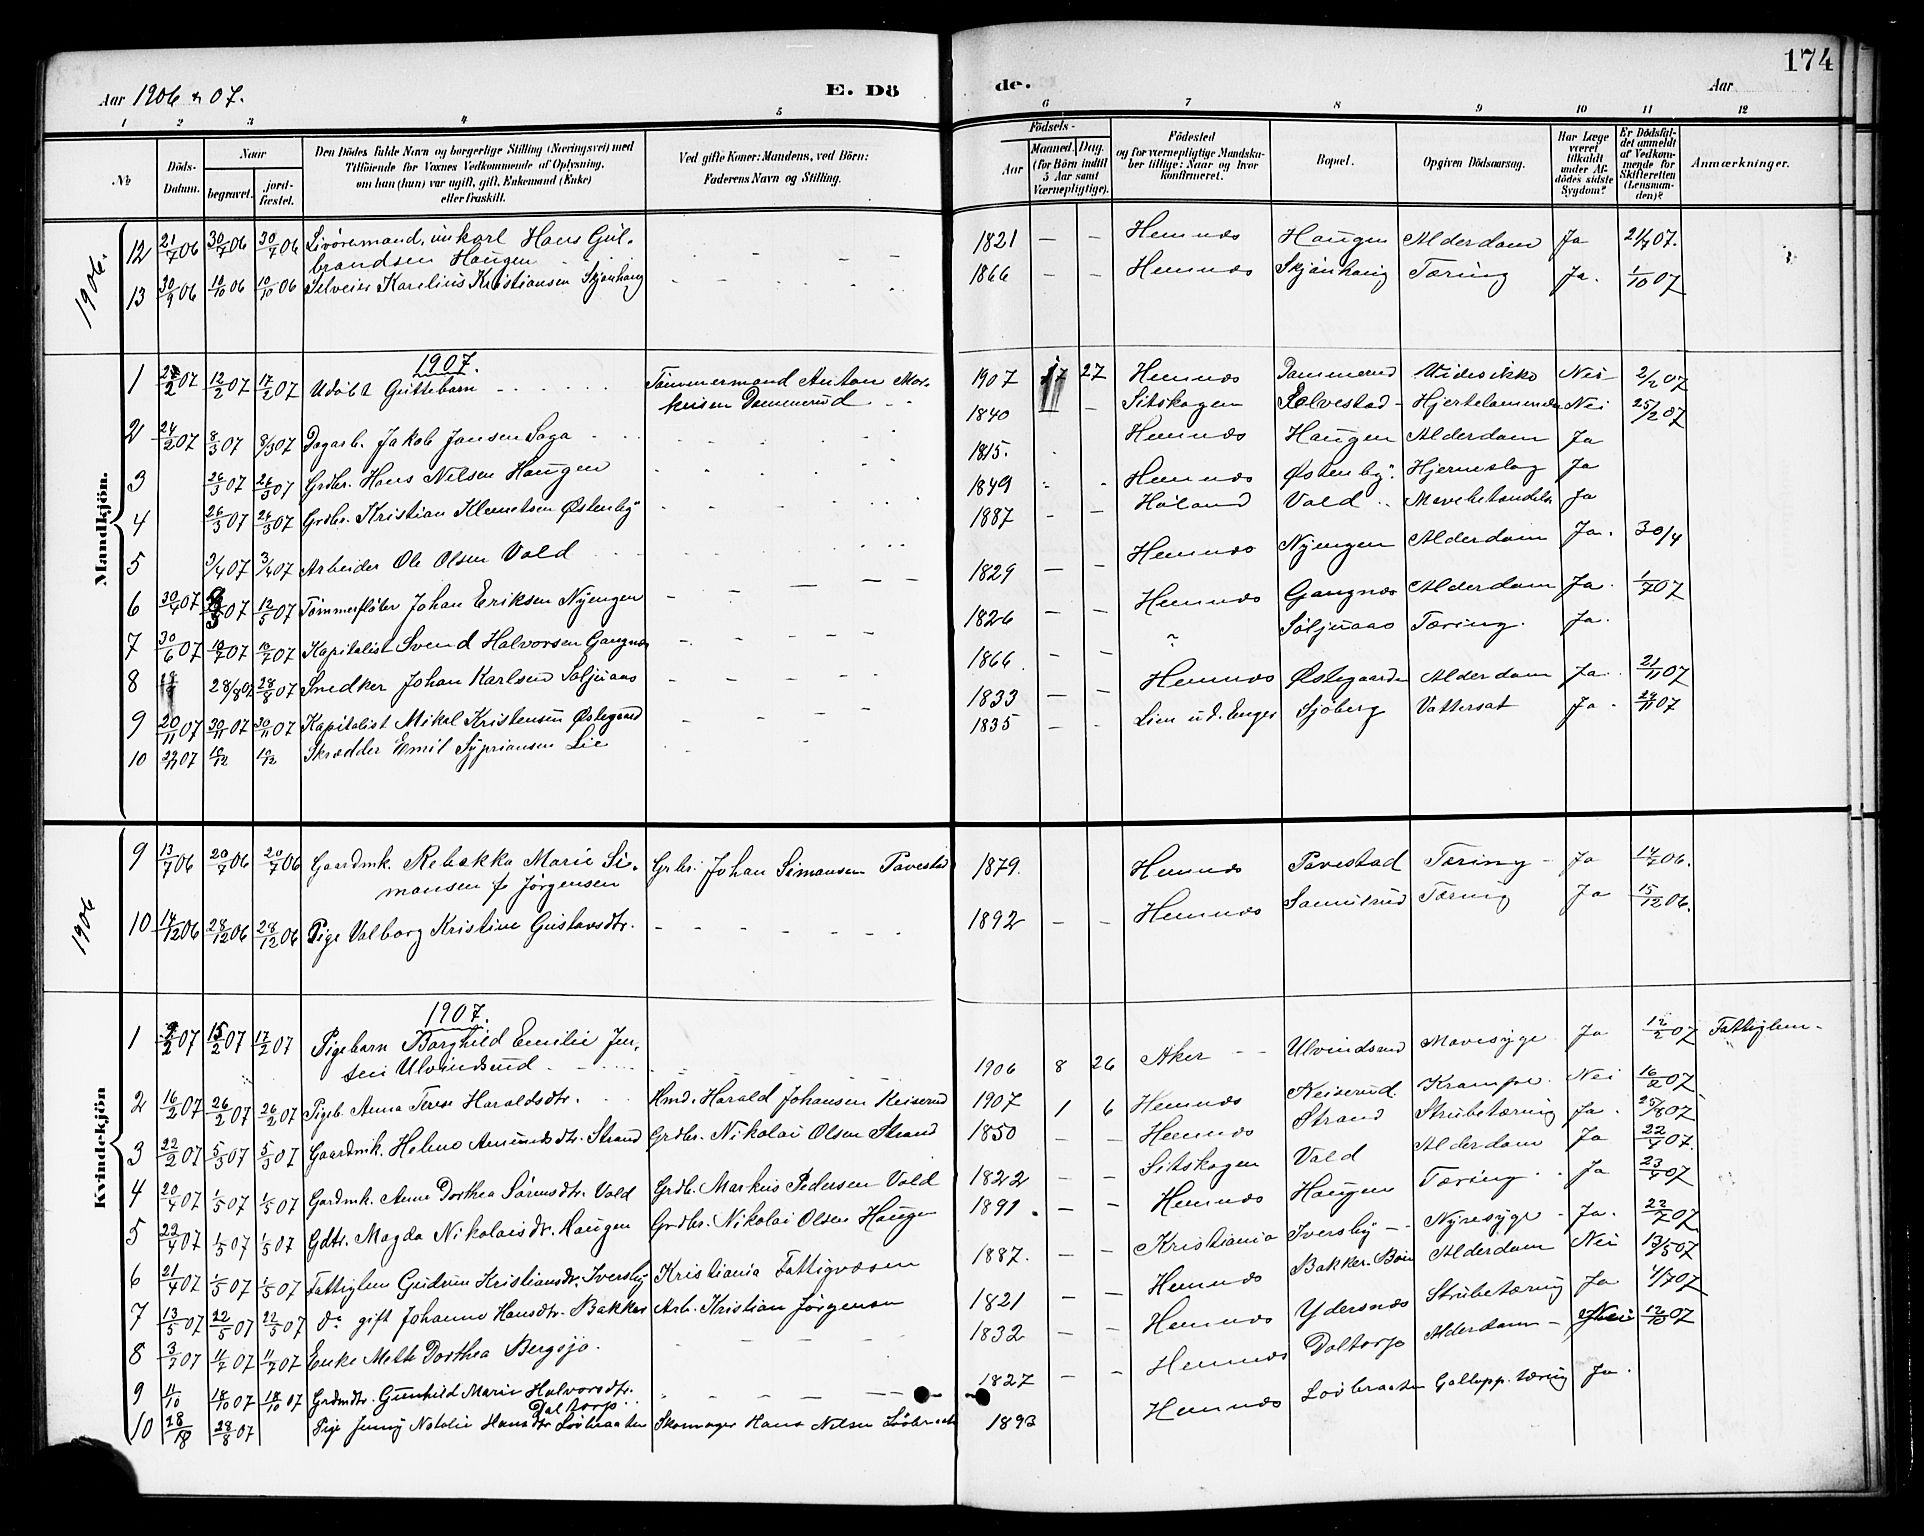 174
Aar 1906 & 07.
E. Dö
de.
Aar
1 2 3 4 5 6 7 8 9 10 11 12
№
Döds-
Datum.
Naar
begravet.
jord-
fæstet.
Den Dödes fulde Navn og borgerlige Stilling (Næringsvei) med
Tilföiende for Voxnes Vedkommende af Oplysning,
om han (hun) var ugift, gift, Enkemand (Enke)
eller fraskilt.
Ved gifte Koner: Mandens, ved Börn:
Faderens Navn og Stilling.
Födsels-
Aar
Maaned. Dag.
(for Börn indtil
5 Aar samt
Værnepligtige).
Födested
og for værnepligtige Mandska-
ber tillige: Naar og hvor
konfirmeret.
Bopæl.
Opgiven Dödsaarsag.
Har Læge
været
tilkaldt
under Af-
dödes sidste
Sygdom?
Er Dödsfal-
det anmeldt
af Vedkom-
mende for
Skifteretten
(Lensman-
den)?
Anmærkninger.
Mandkjön.
1906.
12 21/7 06 30/7 06 30/7 06 Livöremand, unkarl Hans Gul-
brandsen Haugen 1821 — — Hemnæs Haugen Alderdom Ja 21/7 07.
13 30/9 06 10/10 06 10/10 06 Silveier Karelius Kristiansen Skjønhaug 1866 — — Hemnæs Skjønhaug Tæring Ja. 1/10 07
1907.
1 2/2 07 12/2 07 17/2 07 Udøbt Guttebarn Tømmermand Anton Mar-
kusen Dammerud 1907 27 Hemnæs Dammerud Vides ikke Nei 2/2 07
2 24/2 07 8/3 07 8/3 07 Dagarb. Jakob Jansen Saga 1840 — Sitskogen Tolvestad Hjertelammelse Nei 25/2 07
3 26/3 07 26/3 07 Grdbr. Hans Nilsen Haugen 1815. Hemnæs Haugen Alderdom Ja
4 26/3 07 26/3 07 Grdbr. Kristian Klemetsen Østenby 1849 Hemnæs Østenby Hjerneslag Ja
5 3/4 07 3/4 07 Arbeider Ole Olsen Vold 1887 — — Høland Vold Ja
6 30/4 07 07 12/5 07 Tømmerfløter Johan Eriksen Nyengen 1829 — — Hemnæs Nyengen Alderdom Ja. 30/4
7 30/6 07 10/7 07 10/7 07 Kapitalist Svend Halvorsen Gangnæs 1826 — — Hemnæs Gangnæs Alderdom Ja. 1/7 07
8 28/8 07 28/8 07 Snedker Johan Karlsen Soljuaas 1866. — — " Soljuaas Tæring. Ja.
9 20/11 07 30/11 07 30/11 07 Kapitalist Mikal Kristensen Østegaard 1833 — — Hemnæs Østegaarden Alderdom Ja 21/11 07
10 07 10/12 10/12 Skrædder Emil Sypriansen Lie 1835 — — Lien u.d. Enger Sjøberg Vattersot Ja 07
Kvindekjön
1906
9 13/7 06 20/7 06 20/7 06 Gaardmk. Rebekka Marie Si-
mansen f. Jørgensen Grbr. Johan Simansen Tavestad 1879. Hemnæs Tavestad Tæring Ja 14/7 06.
10 14/12 06 28/12 06 28/12 06 Pige Valborg Kristine Gustavsdtr. 1892 — — Hemnæs Sannerud Tæring Ja 15/12 06.
1907.
1 9/2 07 15/2 07 17/2 07 Pigebarn Borghild Emilie Jen-
sen Ulvindsrud 1906 8 26 Aker — Ulvindsrud Mavesyge Ja 12/2 07 Fattiglem-
2 16/2 07 26/2 07 26/2 07 Pigeb. Anna Terese Haraldsdtr. Hmd. Harald Johansen Keiserud 1907 1 6 Hemnæs Keiserud Krampe. Nei 16/2 07
3 22/2 07 5/3 07 5/3 07 Gaardmk. Helene Amundsdtr. Strand Grdbr. Nikolai Olsen Strand 1850 — — Hemnæs Strand Strubetæring Ja. 25/8 07
4 20/4 07 1/5 07 1/5 07 Gardmk. Anne Dorthea Sørensdtr. Vold Grdb. Markus Pedersen Vold 1822 — — Sitskogen Vold Alderdom Ja 22/4 07.
5 22/4 07 1/5 07 1/5 07 Gdtr. Magda Nikolaisdtr. Haugen Grdbr. Nikolai Olsen Haugen 1891. — — Hemnæs Haugen Tæring. Ja 23/4 07
6 21/4 07 1/5 07 1/5 07 Fattiglem Gudrun Kristiansdtr. Iversby Kristiania Fattigvæsen 1887. — — Kristiania Iversby — Nyresyge Ja. 22/7 07
7 13/5 07 22/5 07 22/5 07 do gift Johanne Hansdtr. Bakker Arb. Kristian Jørgensen 1821 — — Hemnæs Bakker. Alderdom Nei 13/5 07
8 3/7 07 11/7 07 11/7 07 Enke Mette Dorthea Bergsjø. 1832 — — Hemnæs Ydersnæs Strubetæring Ja 4/7 07
9 11/10 18/10 07 18/10 07 Grdmdtr. Gunhild Marie Halvorsdtr.
Daltorp 1827 — Hemnæs Daltorp Alderdom — Nei 12/10 07
10 28/8 07 Pige Jenny Natalie Hansdtr Løibraaten Skomager Hans Nilsen Løibraaten 1893 Hemnæs Løibraaten Gallopp. tæring Ja.